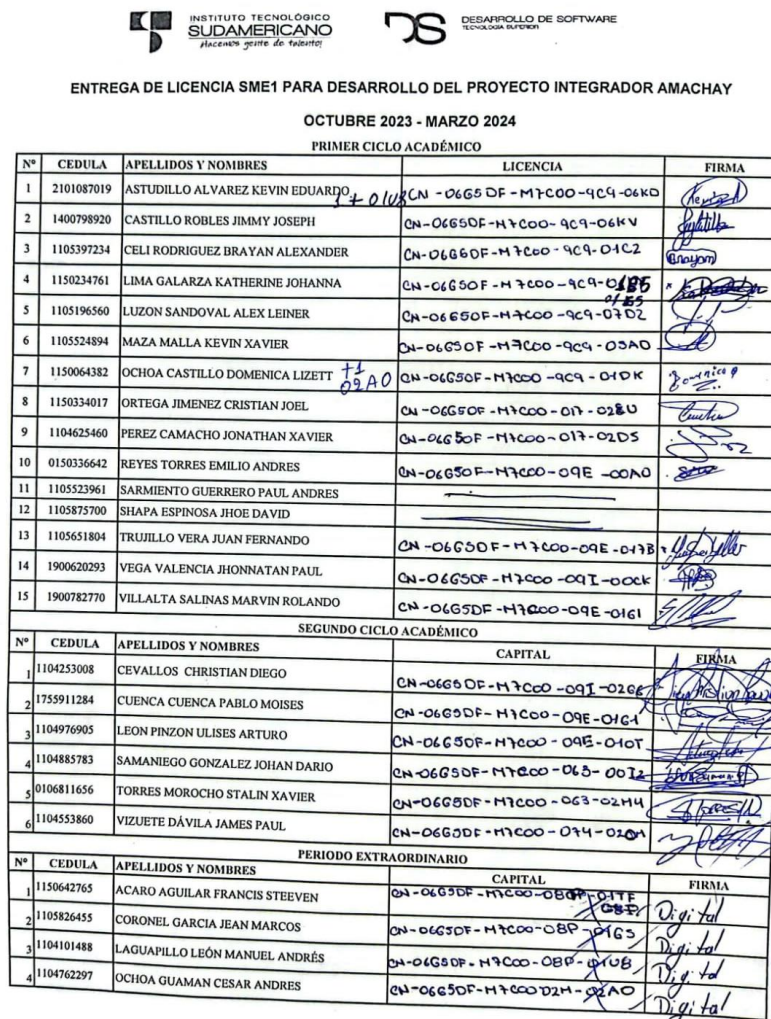 INSTITUTO TECNOLÓGICO
SUDAMERICANO
Hacemos gente de talento!
DS
DESARROLLO DE SOFTWARE
TECNOLOGÍA SUPERIOR
ENTREGA DE LICENCIA SME1 PARA DESARROLLO DEL PROYECTO INTEGRADOR AMACHAY
OCTUBRE 2023 - MARZO 2024
PRIMER CICLO ACADÉMICO
Nº CEDULA APELLIDOS Y NOMBRES LICENCIA FIRMA
1 2101087019 ASTUDILLO ALVAREZ KEVIN EDUARDO CN-06G5DF-M7C00-9C9-06KD
2 1400798920 CASTILLO ROBLES JIMMY JOSEPH CN-06G5DF-M7C00-9C9-06KV
3 1105397234 CELI RODRIGUEZ BRAYAN ALEXANDER CN-06G5DF-M7C00-9C9-01C2 Brayam
4 1150234761 LIMA GALARZA KATHERINE JOHANNA CN-06G5DF-M7C00-9C9-
5 1105196560 LUZON SANDOVAL ALEX LEINER CN-06G5DF-M7C00-9C9-07D2
6 1105524894 MAZA MALLA KEVIN XAVIER CN-06G5DF-M7C00-9C9-05AD
7 1150064382 OCHOA CASTILLO DOMENICA LIZETT +1 02A0 CN-06G5DF-M7C00-9C9-01DK
8 1150334017 ORTEGA JIMENEZ CRISTIAN JOEL CN-06G5DF-M7C00-017-028U
9 1104625460 PEREZ CAMACHO JONATHAN XAVIER CN-06G5DF-M7C00-017-02DS
10 0150336642 REYES TORRES EMILIO ANDRES CN-06G5DF-M7C00-09E-00A0
11 1105523961 SARMIENTO GUERRERO PAUL ANDRES
12 1105875700 SHAPA ESPINOSA JHOE DAVID
13 1105651804 TRUJILLO VERA JUAN FERNANDO CN-06G5DF-M7C00-09E-017B
14 1900620293 VEGA VALENCIA JHONNATAN PAUL CN-06G5DF-M7C00-09I-00CK
15 1900782770 VILLALTA SALINAS MARVIN ROLANDO CN-06G5DF-M7C00-09E-0161
SEGUNDO CICLO ACADÉMICO
Nº CEDULA APELLIDOS Y NOMBRES CAPITAL FIRMA
1 1104253008 CEVALLOS CHRISTIAN DIEGO CN-06G5DF-M7C00-09I-02G6
2 1755911284 CUENCA CUENCA PABLO MOISES CN-06G5DF-M7C00-09E-01G1
3 1104976905 LEON PINZON ULISES ARTURO CN-06G5DF-M7C00-09E-010T
4 1104885783 SAMANIEGO GONZALEZ JOHAN DARIO CN-06G5DF-M7C00-063-00I2
5 0106811656 TORRES MOROCHO STALIN XAVIER CN-06G5DF-M7C00-063-02M4
6 1104553860 VIZUETE DÁVILA JAMES PAUL CN-06G5DF-M7C00-074-020M
PERIODO EXTRAORDINARIO
Nº CEDULA APELLIDOS Y NOMBRES CAPITAL FIRMA
1 1150642765 ACARO AGUILAR FRANCIS STEEVEN CN-06G5DF-M7C00-08P-017F Digital
2 1105826455 CORONEL GARCIA JEAN MARCOS CN-06G5DF-M7C00-08P-01GS Digital
3 1104101488 LAGUAPILLO LEÓN MANUEL ANDRÉS CN-06G5DF-M7C00-08P-01UB Digital
4 1104762297 OCHOA GUAMAN CESAR ANDRES CN-06G5DF-M7C00D2M-02A0 Digital